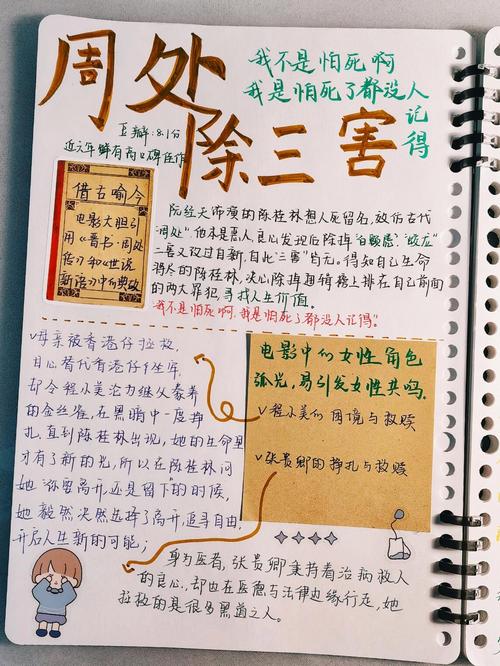 周处除三害
我不是怕死啊
我是怕死了都没人
记得
豆瓣:8.1分
近几年鲜有高口碑佳作
借古喻今
电影大胆引
用《晋书·周处
传》和《世说
新语》中的典故
阮经天饰演的陈桂林想人死留名,效仿古代
"周处"他本是恶人,良心发现后除掉"白额虎""蛟龙"
二害又改过自新,自此"三害"皆无。得知自己生命
将尽的陈桂林,决心除掉通缉榜上排在自己前面
的两大罪犯,寻找人生价值。
"我不是怕死啊,我是怕死了都没人记得"
母亲被香港仔拯救,
自己替代香港仔坐牢,
却令程小美沦为继父豢养
的金丝雀,在黑暗中一度挣
扎,直到陈桂林出现,她的生命里
才有了新的光,所以在陈桂林问
她"你要离开,还是留下"的时候,
她毅然决然选择了离开,追寻自由,
开启人生新的可能;
电影中的女性角色
弧光,易引发女性共鸣。
程小美的困境与救赎
张贵卿的挣扎与救赎
身为医者,张贵卿秉持着治病救人
的良心,却也在医德与法律边缘行走,她
拯救的是很多黑道之人。